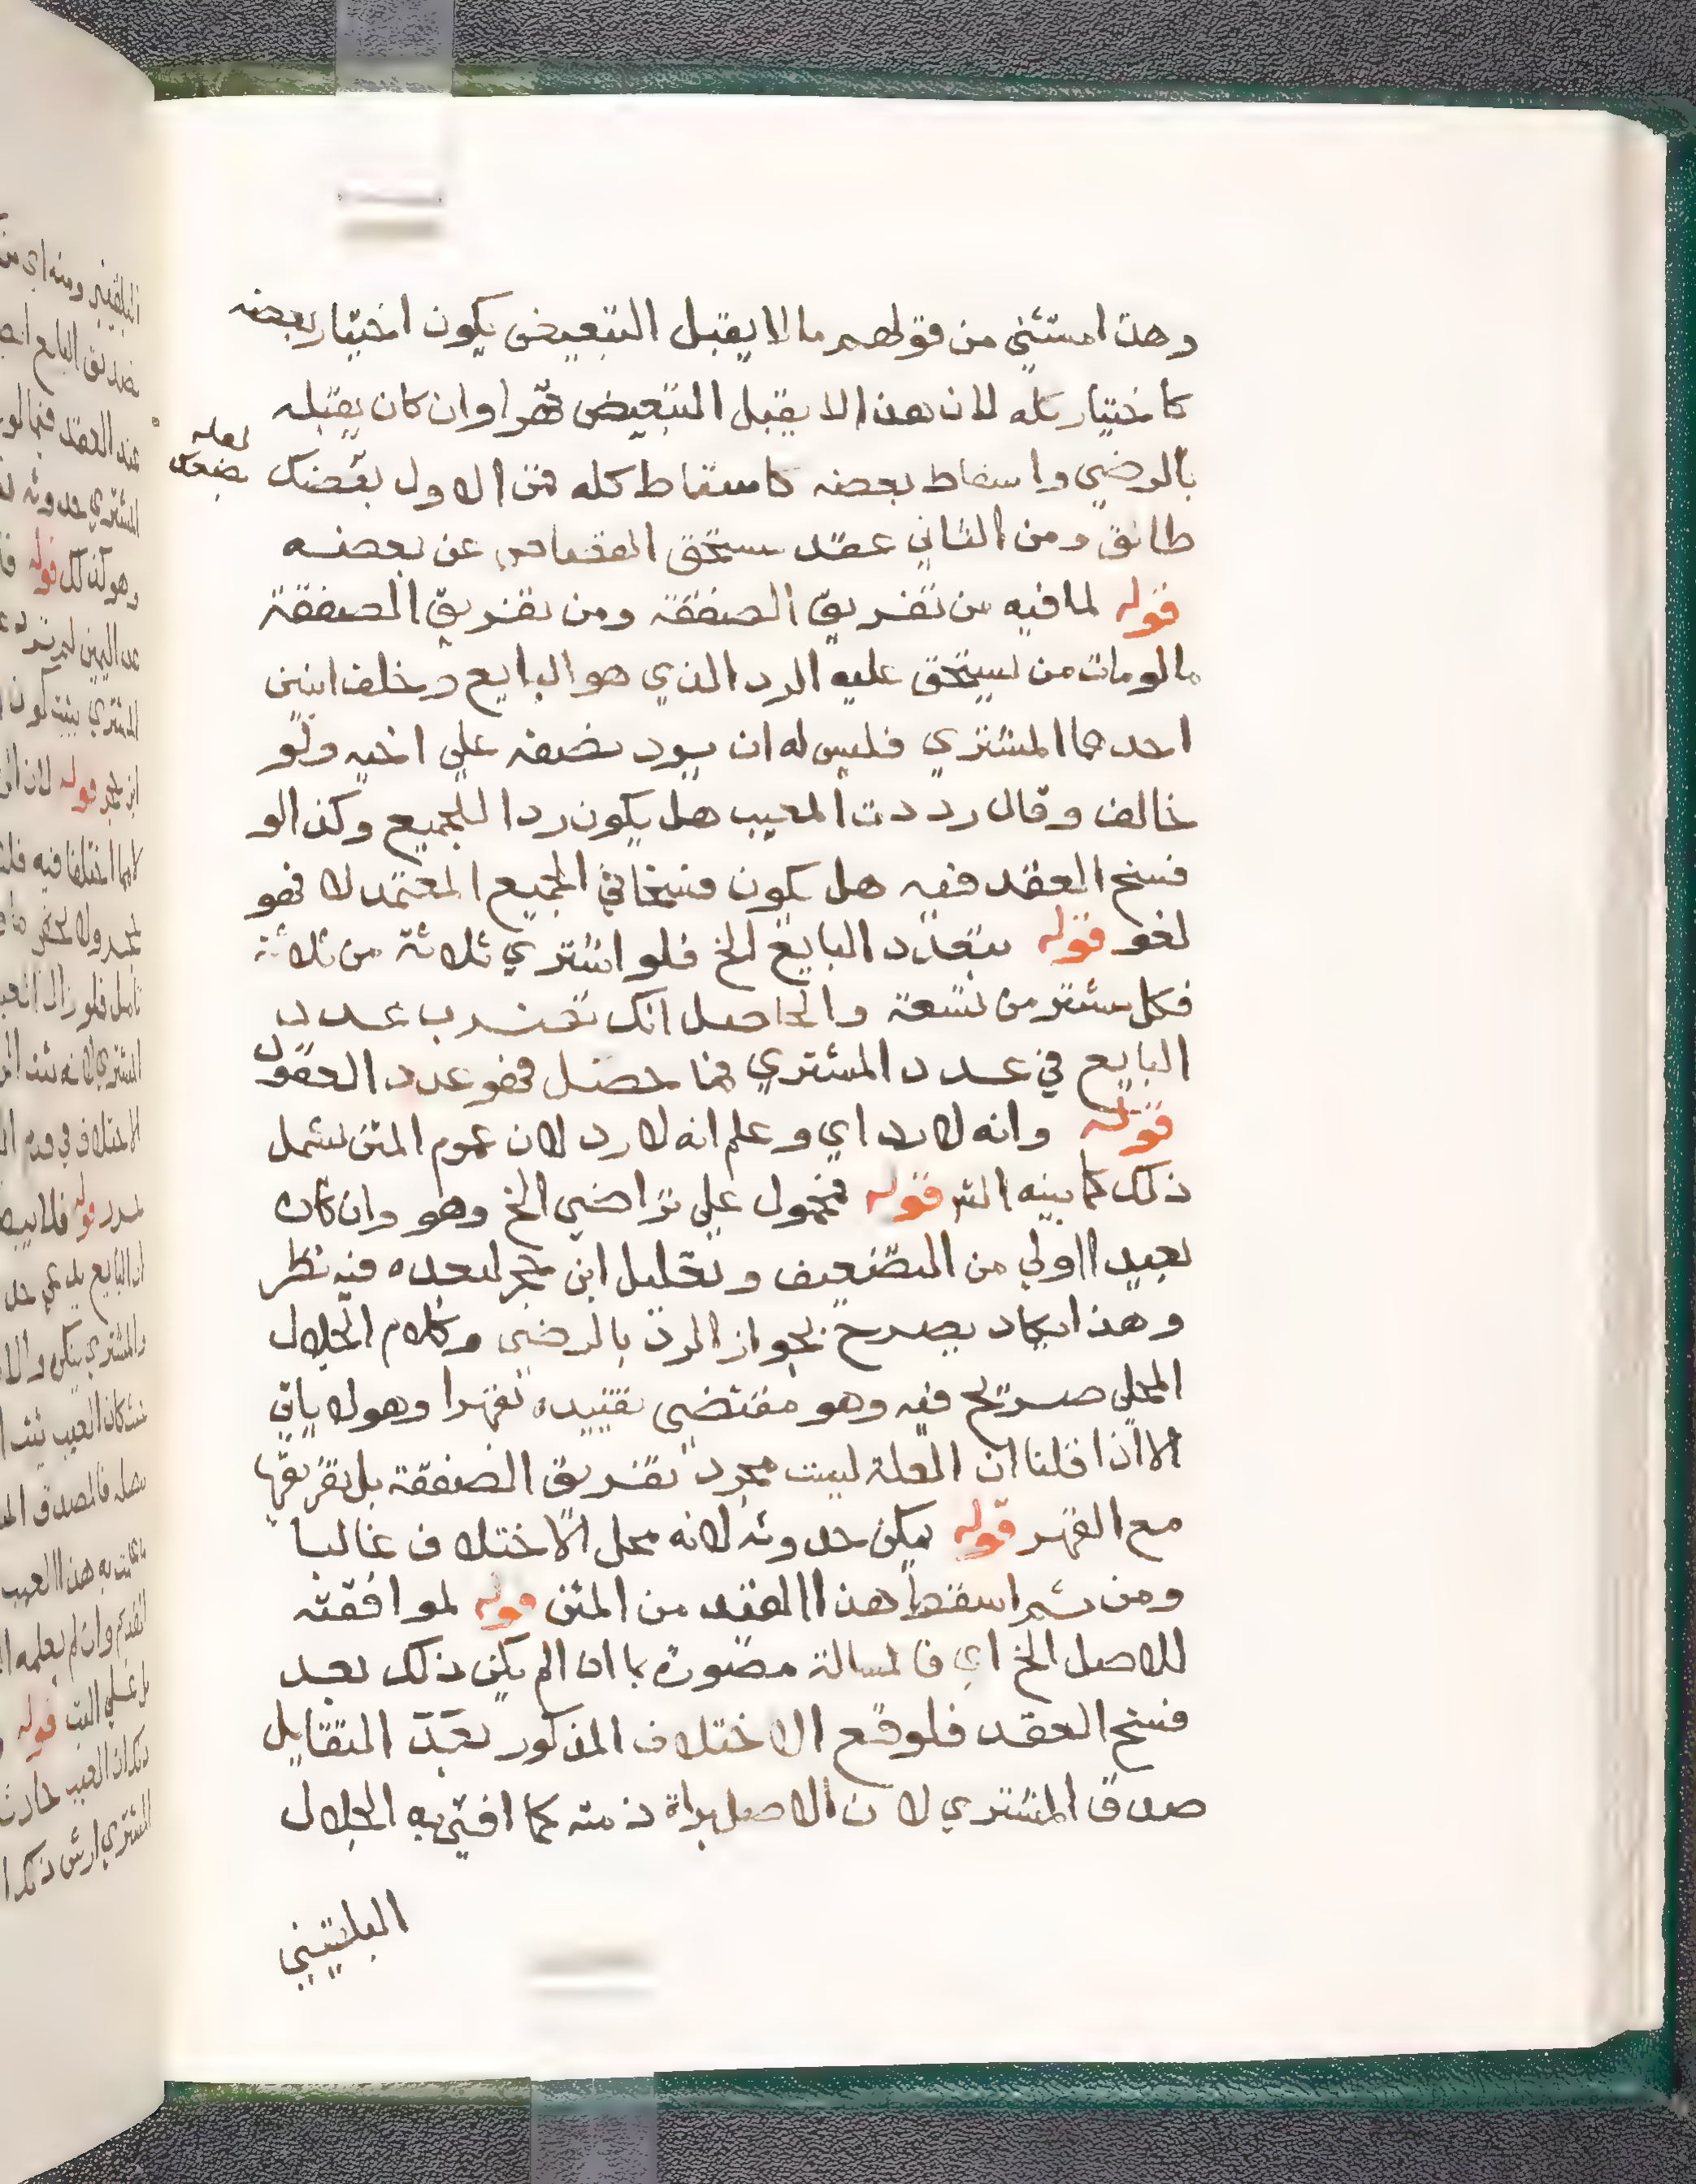 وهذا مستثني من قولهم ما لا يقبل التبعيض يكون اختيار بعضه
كاختيار كله لان هذا لا يقبل التبعيض قهرا وان كان يقبله
بالرضي واسقاط بعضه كاسقاط كله فمن الاول بعضك
لعله
نصفك
طالق ومن الثاني عقد مستحق القصاص عن بعضه
قوله لما فيه من تفريق الصفقة ومن تفريق الصفقة
ما لو مات من يستحق عليه الرد الذي هو البايع وخلف ابنين
احدهما المشتري فليس له ان يرد نصفه علي اخيه ولو
خالف وقال رددت المعيب هل يكون ردا للجميع وكذا لو
فسخ العقد فيه هل يكون فسخا في الجميع المعتمد لا فهو
لغو قوله بتعدد البايع الخ فلو اشتري ثلاثة من ثلاثة
فكل مشتر من تسعة والحاصل انك تضرب عدد
البايع في عدد المشتري فما حصل فهو عدد العقود
قوله وانه لا رد اي وعلم انه لا رد لان عموم المتن يشمل
ذلك كما بينه الشر قوله فمحمول علي تراضي الخ وهو وان كان
بعيدا اولي من التضعيف وتعليل ابن حجر لبعده فيه نظر
وهذا يكاد يصرح بجواز الرد بالرضي وكلام الجلال
المحلي صريح فيه وهو مقتضي تقييده تقهرا وهو لا ياتي
الا اذا قلنا ان العلة ليست مجرد تفريق الصفقة بل تفريقها
مع القهر قوله يمكن حدوثه لانه محل الاختلاف غالبا
ومن ثم اسقط هذا القيد من المتن قوله لموافقته
للاصل الخ اي فالمسالة مصورة بما اذا لم يكن ذلك بعد
فسخ العقد فلو وقع الاختلاف المذكور بعد التقايل
صدق المشتري لان الاصل براة ذمته كما افتي به الجلال
البلقيني